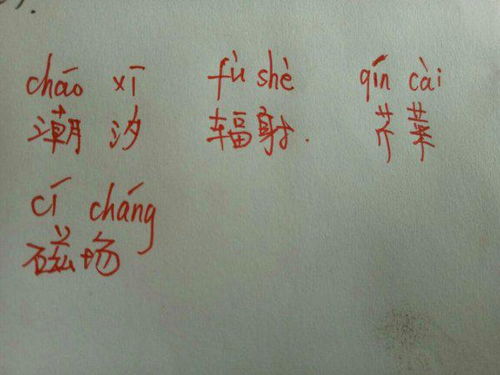 cháo xī fù shè qín cài
潮 汐 辐射. 芹菜
cí cháng
磁场